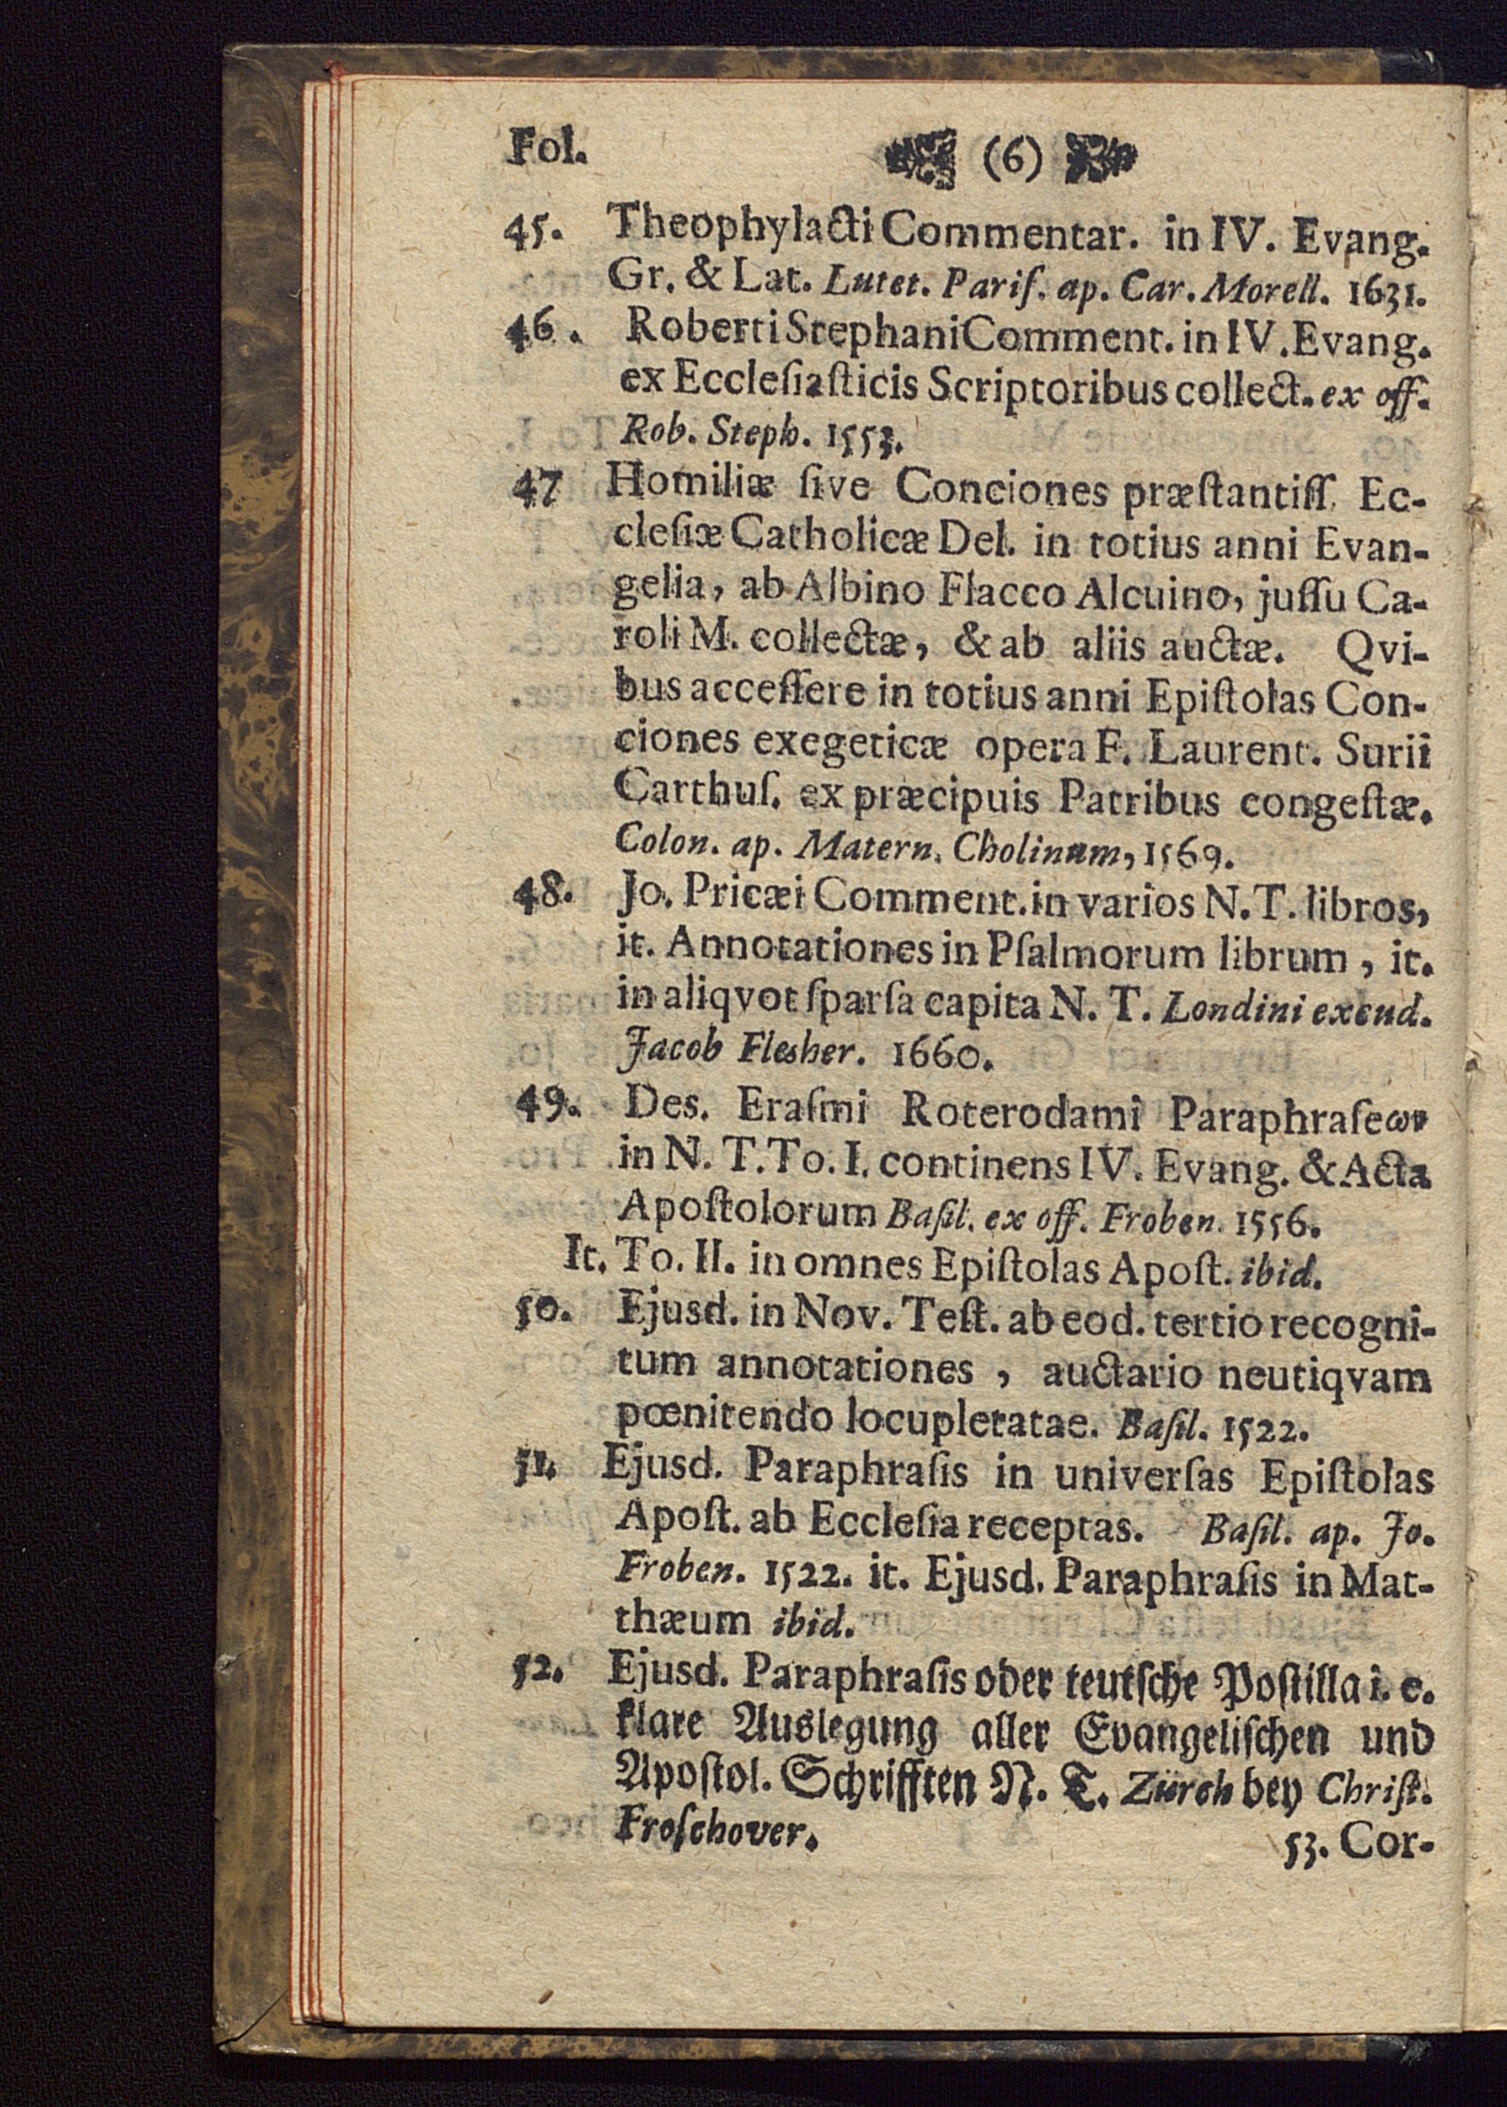 Fol. (6)
45. Theophylacti Commentar. in IV. Evang.
Gr. & Lat. Lutet. Pariſ. ap. Car. Morell. 1631.
46. Roberti Stephani Comment. in IV. Evang.
ex Eccleſiaſticis Scriptoribus collect. ex off.
Rob. Steph. 1553.
47 Homiliæ ſive Conciones præſtantiſſ. Ec-
cleſiæ Catholicæ Del. in totius anni Evan-
gelia, ab Albino Flacco Alcuino, juſſu Ca-
roli M. collectæ, & ab aliis auctæ. Qvi-
bus acceſſere in totius anni Epiſtolas Con-
ciones exegeticæ opera F. Laurent. Surii
Carthuſ. ex præcipuis Patribus congeſtæ.
Colon. ap. Matern. Cholinum, 1569.
48. Jo. Pricæi Comment. in varios N. T. libros,
it. Annotationes in Pſalmorum librum, it.
in aliqvot ſparſa capita N. T. Londini excud.
Jacob Flesher. 1660.
49. Des. Eraſmi Roterodami Paraphraſeων
in N. T. To. I. continens IV. Evang. & Acta
Apoſtolorum Baſil. ex off. Froben. 1556.
It. To. II. in omnes Epiſtolas Apoſt. ibid.
50. Ejusd. in Nov. Teſt. ab eod. tertio recogni-
tum annotationes, auctario neutiqvam
pœnitendo locupletatae. Baſil. 1522.
51. Ejusd. Paraphraſis in univerſas Epiſtolas
Apoſt. ab Eccleſia receptas. Baſil. ap. Jo.
Froben. 1522. it. Ejusd. Paraphraſis in Mat-
thæum ibid.
52. Ejusd. Paraphraſis oder teutſche Poſtilla i. e.
klare Auslegung aller Evangeliſchen und
Apoſtol. Schrifften N. T. Zürch bey Chriſt.
Froſchover.
53. Cor-